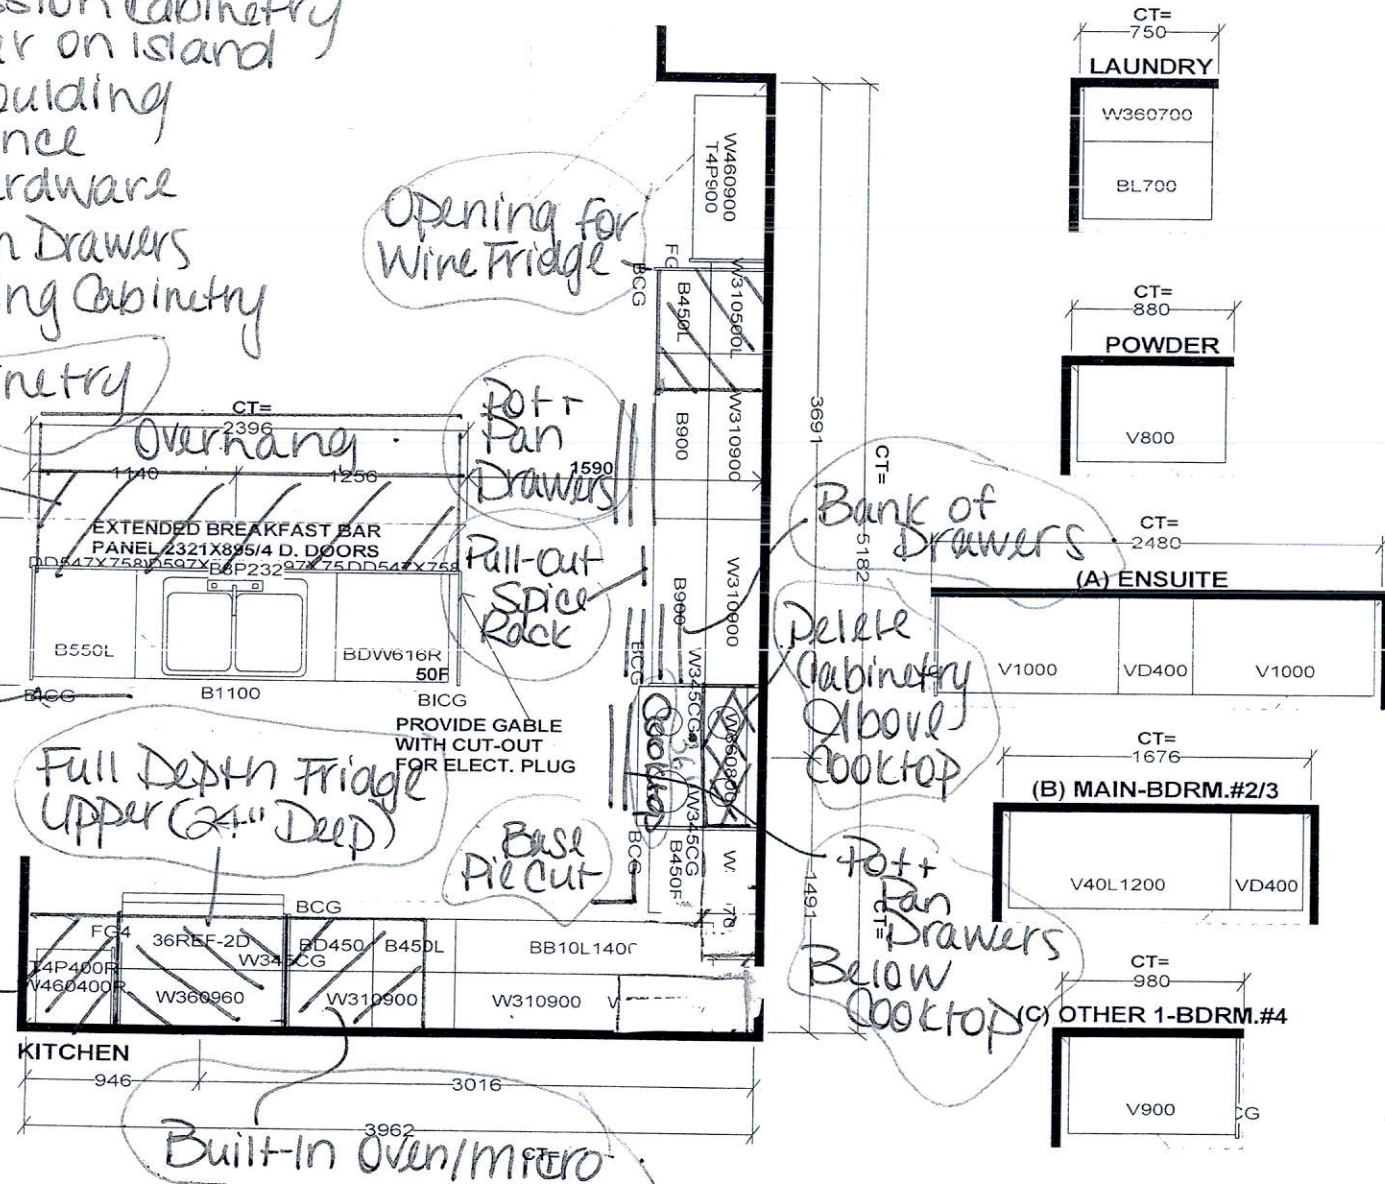 ssion Cabinetry
ar on island
oulding
nce
ardware
n Drawers
ing Cabinetry
inetry
Opening for
Wine Fridge
Pot +
Pan
Drawers
Pull-Out
Spice
Rack
Bank of
Drawers
Delete
Cabinetry
Above
Cooktop
Pot +
Pan
Drawers
Below
Cooktop
Base
Pie Cut
Full Depth Fridge
Upper (24" Deep)
Built-In Oven/micro
Cooktop
36"
CT=
2396
Overhang
1140
1256
1590
EXTENDED BREAKFAST BAR
PANEL 2321X895/4 D. DOORS
B550L
B1100
BDW616R
50F
BICG
BICG
PROVIDE GABLE
WITH CUT-OUT
FOR ELECT. PLUG
W460900
T4P900
FG
BCG
B450L
W310500L
B900
W310900
B900
W310900
BCG
W345CG
W345CG
B450F
BCG
3691
CT=
5182
1491
CT=
BCG
FG4
36REF-2D
BD450
B450L
W345CG
T4P400R
W460400R
W360960
W310900
W310900
KITCHEN
946
3016
3962
CT=
CT=
750
LAUNDRY
W360700
BL700
CT=
880
POWDER
V800
CT=
2480
(A) ENSUITE
V1000
VD400
V1000
CT=
1676
(B) MAIN-BDRM.#2/3
V40L1200
VD400
CT=
980
(C) OTHER 1-BDRM.#4
V900
CG